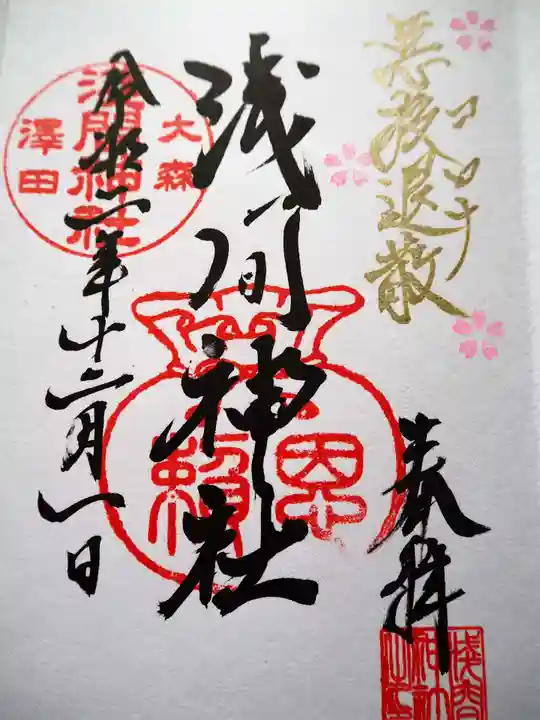 悪疫退散
コロナ
奉拝
浅間神社
大森
浅間神社
澤田
令和二年十二月一日